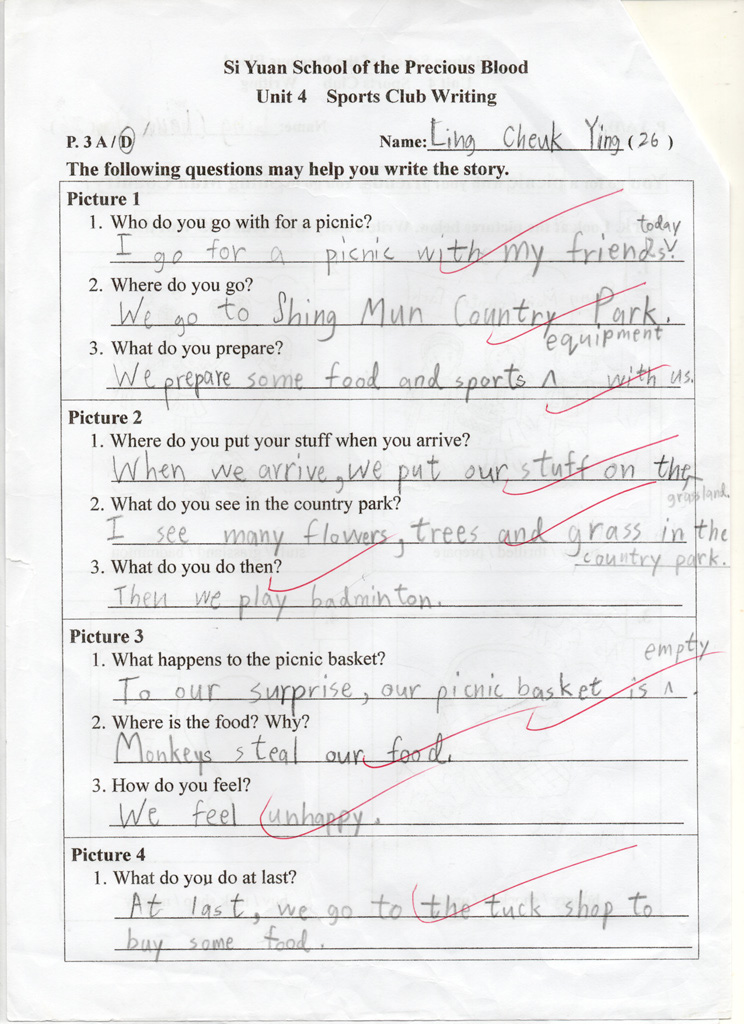 Si Yuan School of the Precious Blood
Unit 4 Sports Club Writing
P. 3 A / D Name: Ling Cheuk Ying ( 26 )
The following questions may help you write the story.
Picture 1
1. Who do you go with for a picnic?
today
I go for a picnic with my friends.
2. Where do you go?
We go to Shing Mun Country Park.
3. What do you prepare?
equipment
We prepare some food and sports ∧ with us.
Picture 2
1. Where do you put your stuff when you arrive?
When we arrive, we put our stuff on the
grassland.
2. What do you see in the country park?
I see many flowers, trees and grass in the
country park.
3. What do you do then?
Then we play badminton.
Picture 3
1. What happens to the picnic basket?
empty
To our surprise, our picnic basket is ∧ .
2. Where is the food? Why?
Monkeys steal our food.
3. How do you feel?
We feel unhappy.
Picture 4
1. What do you do at last?
At last, we go to the tuck shop to
buy some food.